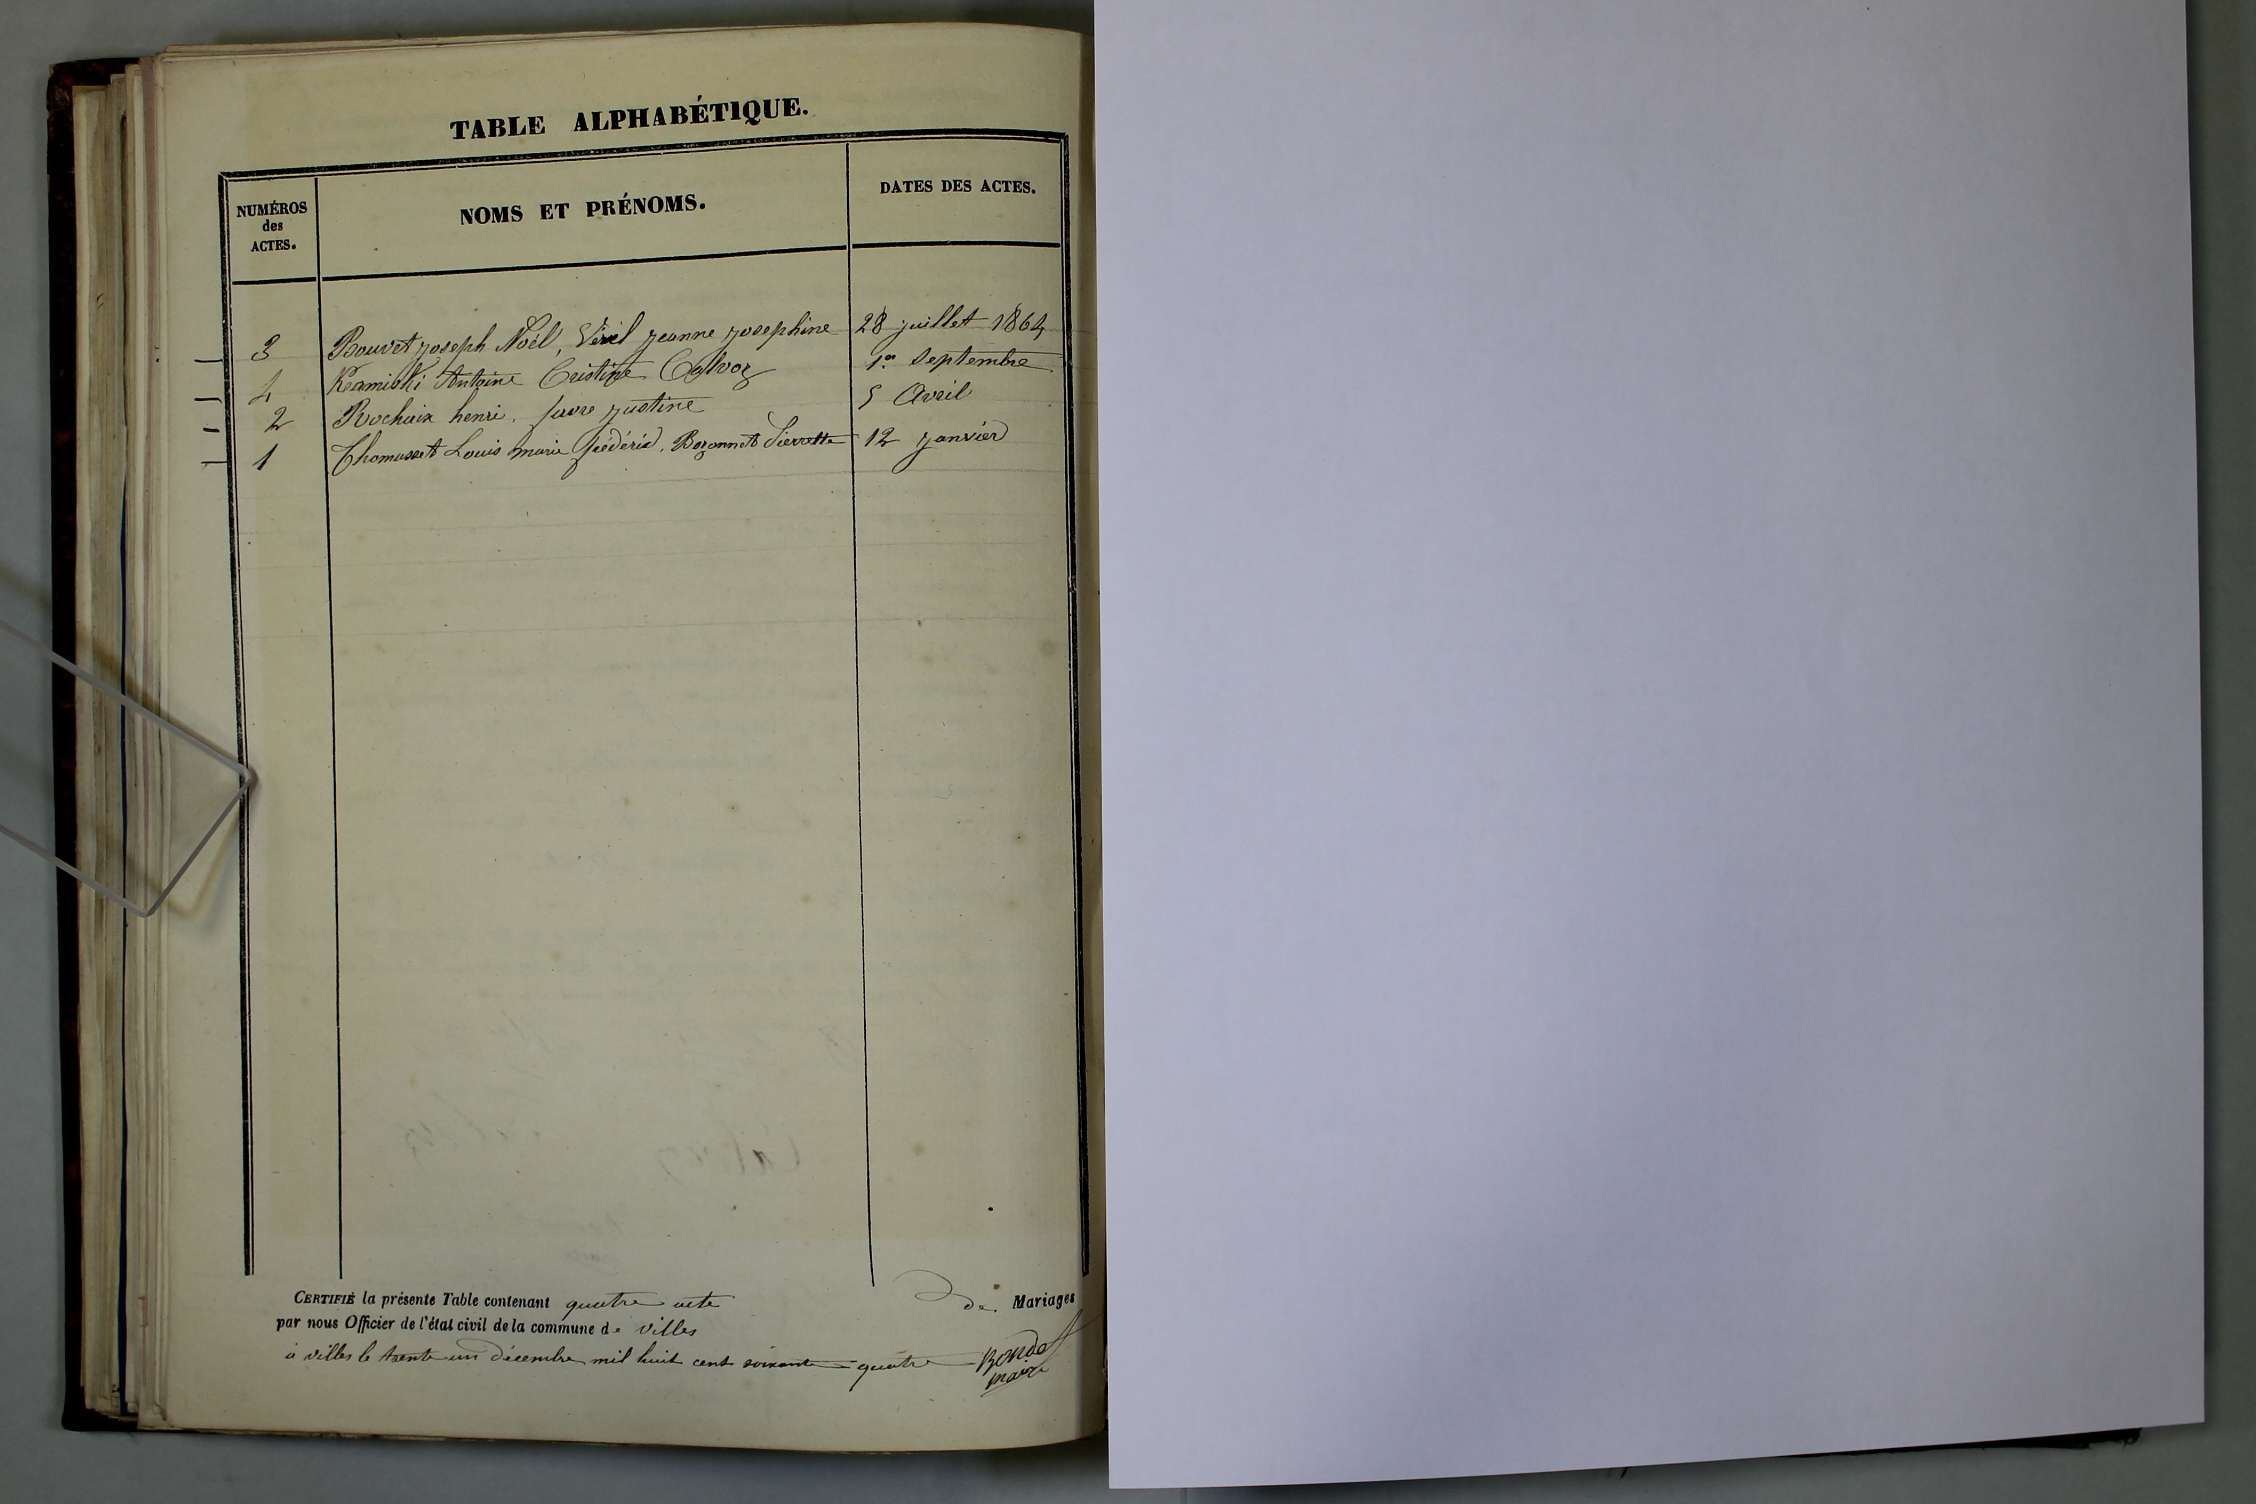 TABLE ALPHABÉTIQUE.
NUMÉROS
des
ACTES.
NOMS ET PRÉNOMS.
DATES DES ACTES.
3 Bouvet joseph Noël, Viviel jeanne josephine 28 juillet 1864
4 Kamiski Antoine Cristine Calvoz 1er Septembre
2 Rochaix henri. favre justine 5 Avril
1 Thomasset Louis marie frédéric. Bozonnet Pierrette 12 janvier
CERTIFIÉ la présente Table contenant quatre acte de Mariages
par nous Officier de l'état civil de la commune de villes
à villes le trente un décembre mil huit cent soixante quatre
maire